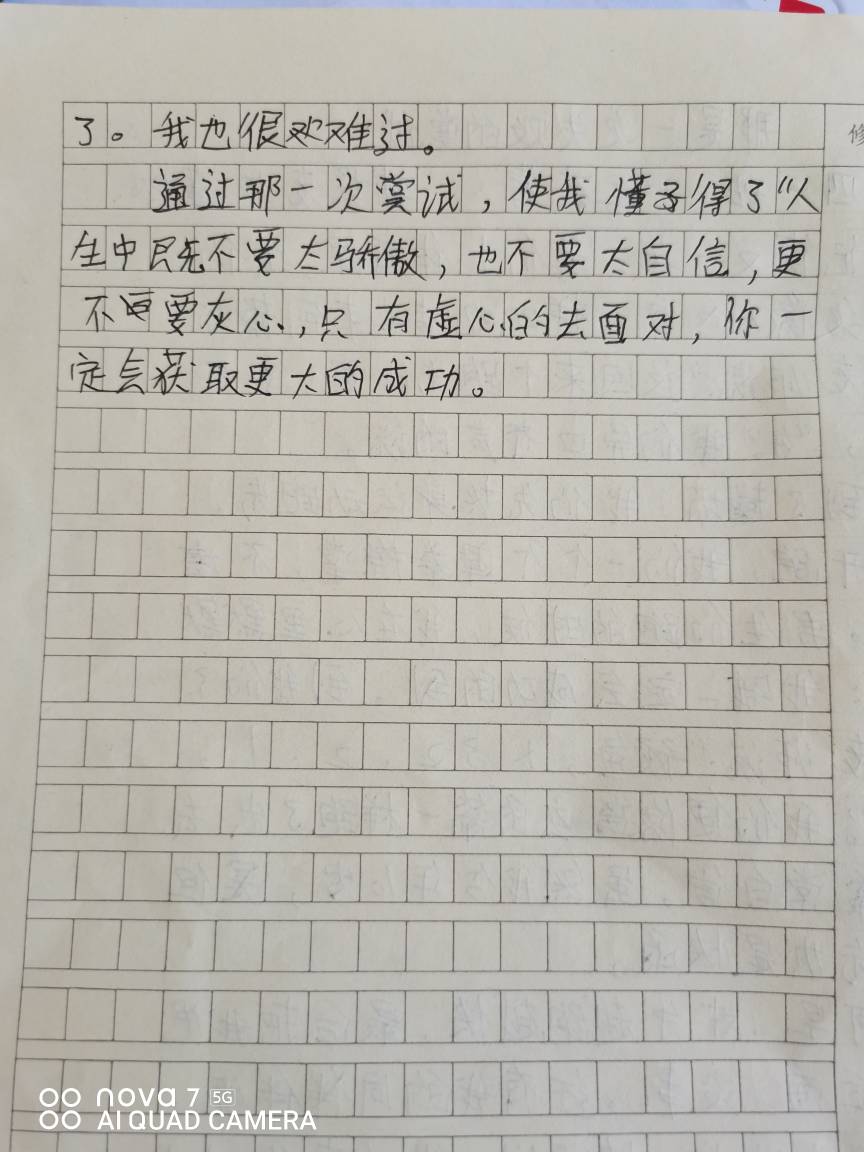 了。我也很欢难过。
通过那一次尝试，使我懂子得了“人
生中民先不要太骄傲，也不要太自信，更
不更要灰心，只有虚心的去面对，你一
定会获取更大的成功。
修
nova 7 5G
AI QUAD CAMERA